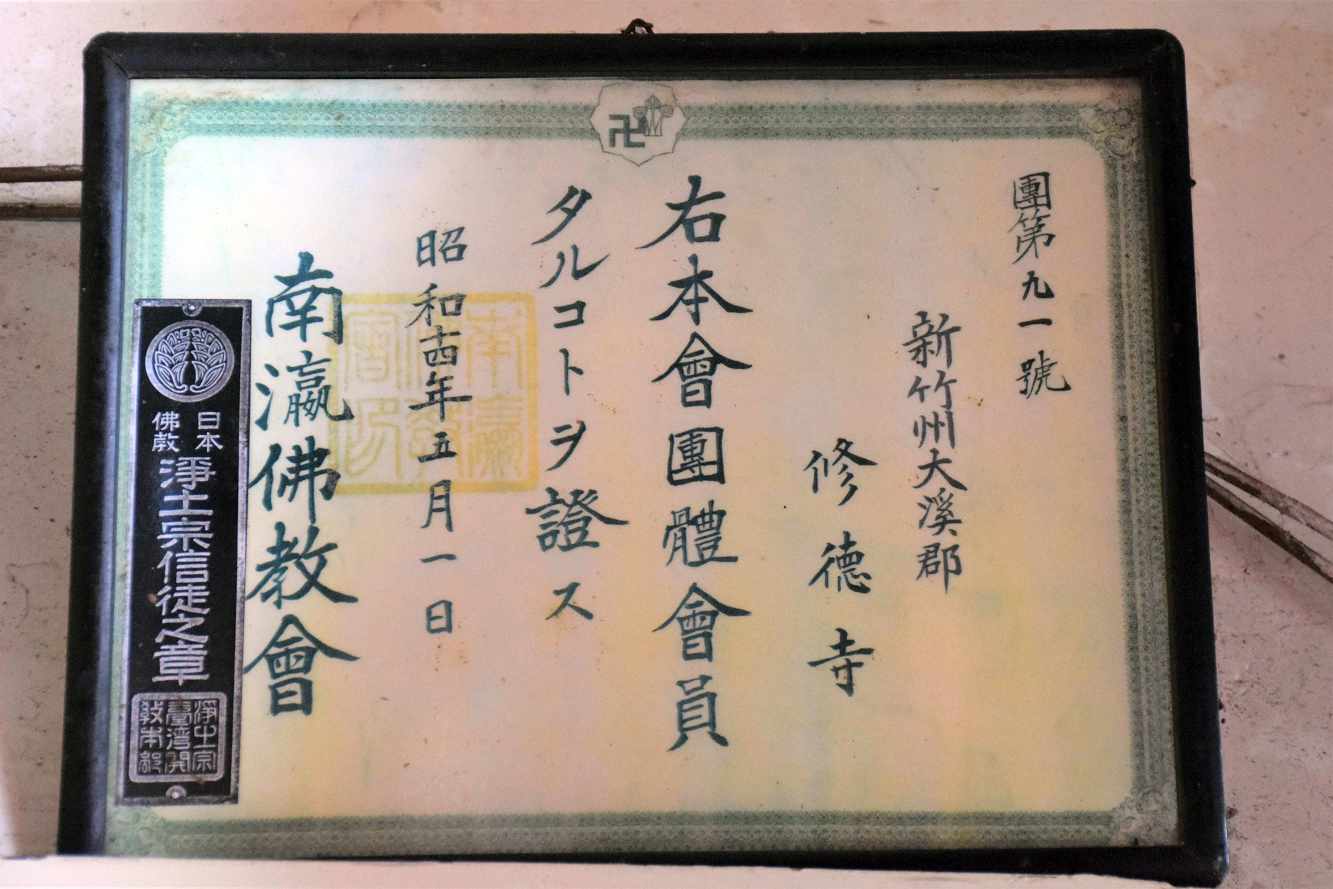 卍
團第九一號
新竹州大溪郡
修德寺
右本會團體會員
タルコトヲ證ス
昭和十四年五月一日
南瀛佛教會
日本
佛教
淨土宗信徒之章
淨土宗
臺灣開
教本部